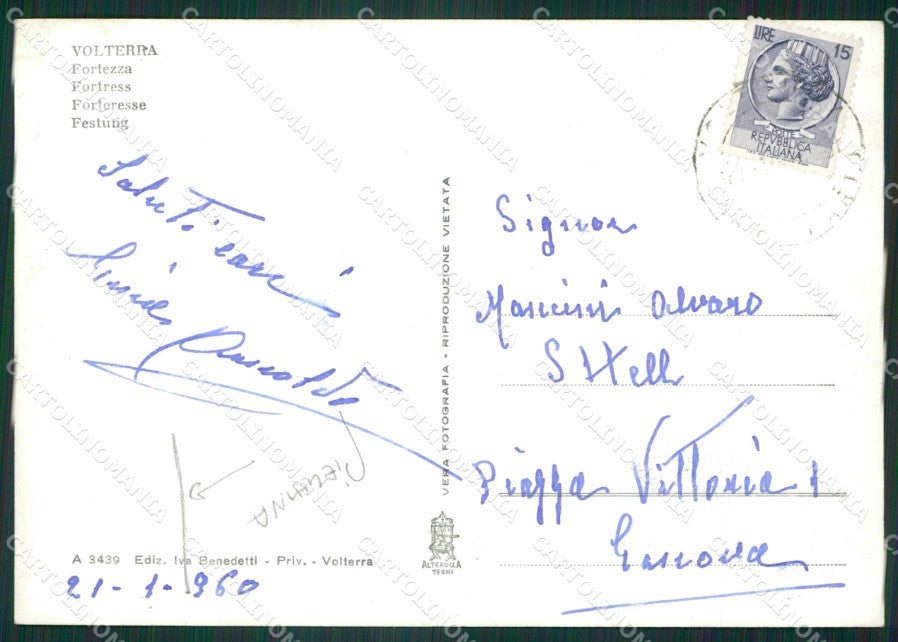 VOLTERRA
Fortezza
Fortress
Forteresse
Festung
LIRE 15
POSTE
REPVBBLICA
ITALIANA
Saluti cari
VERA FOTOGRAFIA - RIPRODUZIONE VIETATA
Signor
Mancini Alvaro
S Hell
Piazza Vittoria 1
Genova
A 3439 Ediz. Iva Benedetti - Priv. - Volterra
21-1-960
ALTEROCCA
TERNI
CARTOLINOMANIA